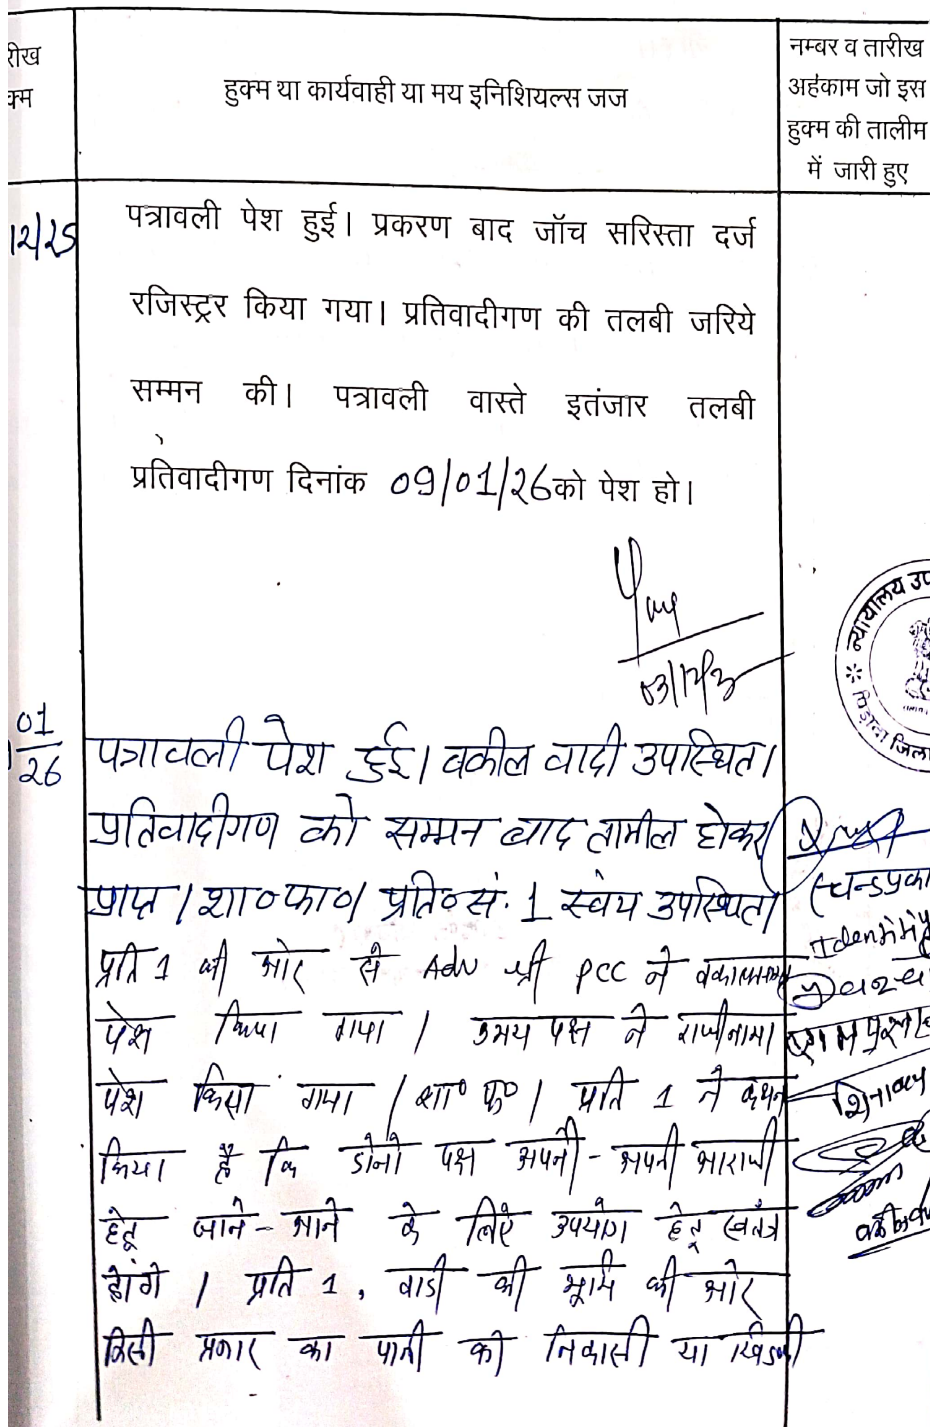 रीख
क्म
हुक्म या कार्यवाही या मय इनिशियल्स जज
नम्बर व तारीख
अहंकाम जो इस
हुक्म की तालीम
में जारी हुए
12/25
पत्रावली पेश हुई। प्रकरण बाद जॉच सरिस्ता दर्ज
रजिस्ट्रर किया गया। प्रतिवादीगण की तलबी जरिये
सम्मन की। पत्रावली वास्ते इतंजार तलबी
प्रतिवादीगण दिनांक 09/01/26 को पेश हो।
न्यायालय उप
जिला
01
26
पत्रावली पेश हुई। वकील वादी उपस्थित।
प्रतिवादीगण को सम्मन बाद तामील होकर
प्राप्त। शा०फा०। प्रति०सं. 1 स्वंय उपस्थित।
प्रति 1 की ओर से Adv श्री PCC ने वकालतनामा
पेश किया गया। उभय पक्ष ने राजीनामा
पेश किया गया। शा० फ०। प्रति 1 ने कथन
किया है कि दोनो पक्ष अपनी-अपनी आराजी
हेतू जाने-आने के लिए उपयोग हेतू स्वतंत्र
होंगे। प्रति 1, वादी की भूमि की ओर
किसी प्रकार का पानी की निकासी या खिडकी